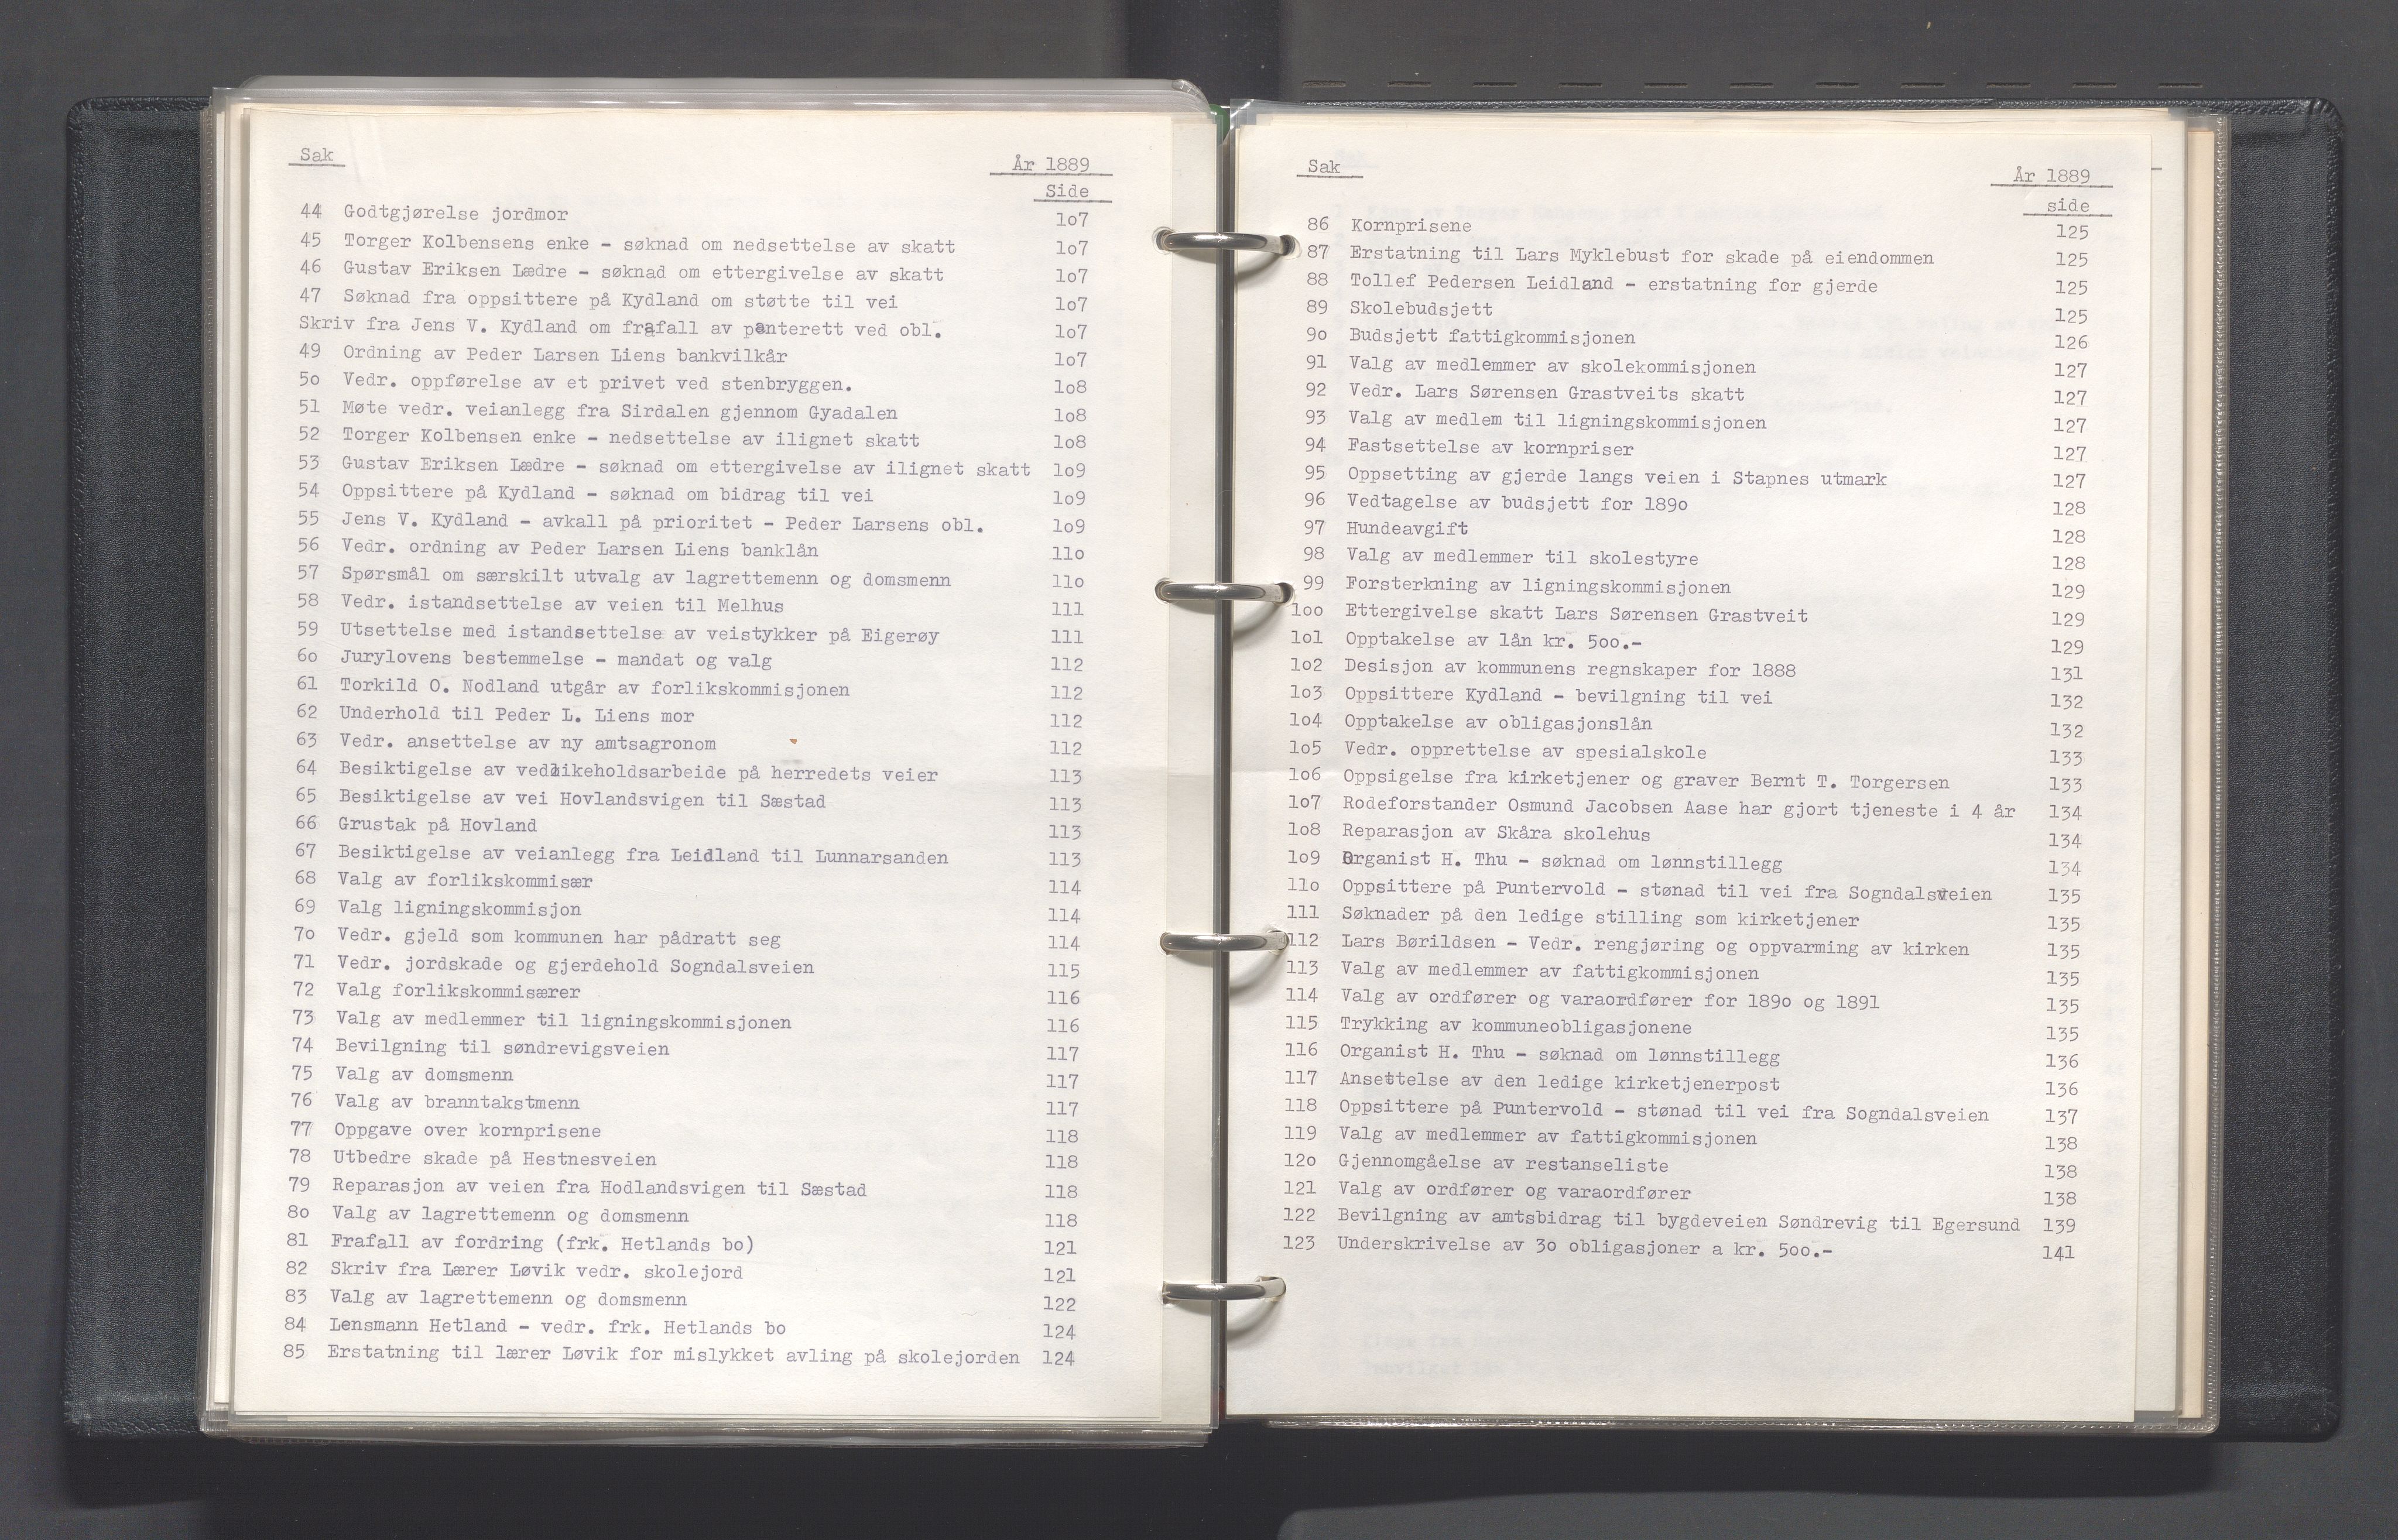 Sak
År 1889
Side
44 Godtgjørelse jordmor 1o7
45 Torger Kolbensens enke - søknad om nedsettelse av skatt 1o7
46 Gustav Eriksen Lædre - søknad om ettergivelse av skatt 1o7
47 Søknad fra oppsittere på Kydland om støtte til vei 1o7
Skriv fra Jens V. Kydland om frafall av panterett ved obl. 1o7
49 Ordning av Peder Larsen Liens bankvilkår 1o7
5o Vedr. oppførelse av et privet ved stenbryggen. 1o8
51 Møte vedr. veianlegg fra Sirdalen gjennom Gyadalen 1o8
52 Torger Kolbensen enke - nedsettelse av ilignet skatt 1o8
53 Gustav Eriksen Lædre - søknad om ettergivelse av ilignet skatt 1o9
54 Oppsittere på Kydland - søknad om bidrag til vei 1o9
55 Jens V. Kydland - avkall på prioritet - Peder Larsens obl. 1o9
56 Vedr. ordning av Peder Larsen Liens banklån 11o
57 Spørsmål om særskilt utvalg av lagrettemenn og domsmenn 11o
58 Vedr. istandsettelse av veien til Melhus 111
59 Utsettelse med istandsettelse av veistykker på Eigerøy 111
6o Jurylovens bestemmelse - mandat og valg 112
61 Torkild O. Nodland utgår av forlikskommisjonen 112
62 Underhold til Peder L. Liens mor 112
63 Vedr. ansettelse av ny amtsagronom 112
64 Besiktigelse av vedlikeholdsarbeide på herredets veier 113
65 Besiktigelse av vei Hovlandsvigen til Sæstad 113
66 Grustak på Hovland 113
67 Besiktigelse av veianlegg fra Leidland til Lunnarsanden 113
68 Valg av forlikskommisær 114
69 Valg ligningskommisjon 114
7o Vedr. gjeld som kommunen har pådratt seg 114
71 Vedr. jordskade og gjerdehold Sogndalsveien 115
72 Valg forlikskommisærer 116
73 Valg av medlemmer til ligningskommisjonen 116
74 Bevilgning til søndrevigsveien 117
75 Valg av domsmenn 117
76 Valg av branntakstmenn 117
77 Oppgave over kornprisene 118
78 Utbedre skade på Hestnesveien 118
79 Reparasjon av veien fra Hodlandsvigen til Sæstad 118
8o Valg av lagrettemenn og domsmenn 118
81 Frafall av fordring (frk. Hetlands bo) 121
82 Skriv fra Lærer Løvik vedr. skolejord 121
83 Valg av lagrettemenn og domsmenn 122
84 Lensmann Hetland - vedr. frk. Hetlands bo 124
85 Erstatning til lærer Løvik for mislykket avling på skolejorden 124
Sak
År 1889
side
86 Kornprisene 125
87 Erstatning til Lars Myklebust for skade på eiendommen 125
88 Tollef Pedersen Leidland - erstatning for gjerde 125
89 Skolebudsjett 125
9o Budsjett fattigkommisjonen 126
91 Valg av medlemmer av skolekommisjonen 127
92 Vedr. Lars Sørensen Grastveits skatt 127
93 Valg av medlem til ligningskommisjonen 127
94 Fastsettelse av kornpriser 127
95 Oppsetting av gjerde langs veien i Stapnes utmark 127
96 Vedtagelse av budsjett for 189o 128
97 Hundeavgift 128
98 Valg av medlemmer til skolestyre 128
99 Forsterkning av ligningskommisjonen 129
1oo Ettergivelse skatt Lars Sørensen Grastveit 129
1o1 Opptakelse av lån kr. 5oo.- 129
1o2 Desisjon av kommunens regnskaper for 1888 131
1o3 Oppsittere Kydland - bevilgning til vei 132
1o4 Opptakelse av obligasjonslån 132
1o5 Vedr. opprettelse av spesialskole 133
1o6 Oppsigelse fra kirketjener og graver Bernt T. Torgersen 133
1o7 Rodeforstander Osmund Jacobsen Aase har gjort tjeneste i 4 år 134
1o8 Reparasjon av Skåra skolehus 134
1o9 Organist H. Thu - søknad om lønnstillegg 134
11o Oppsittere på Puntervold - stønad til vei fra Sogndalsveien 135
111 Søknader på den ledige stilling som kirketjener 135
112 Lars Børildsen - Vedr. rengjøring og oppvarming av kirken 135
113 Valg av medlemmer av fattigkommisjonen 135
114 Valg av ordfører og varaordfører for 189o og 1891 135
115 Trykking av kommuneobligasjonene 135
116 Organist H. Thu - søknad om lønnstillegg 136
117 Ansettelse av den ledige kirketjenerpost 136
118 Oppsittere på Puntervold - stønad til vei fra Sogndalsveien 137
119 Valg av medlemmer av fattigkommisjonen 138
12o Gjennomgåelse av restanseliste 138
121 Valg av ordfører og varaordfører 138
122 Bevilgning av amtsbidrag til bygdeveien Søndrevig til Egersund 139
123 Underskrivelse av 3o obligasjoner a kr. 5oo.- 141